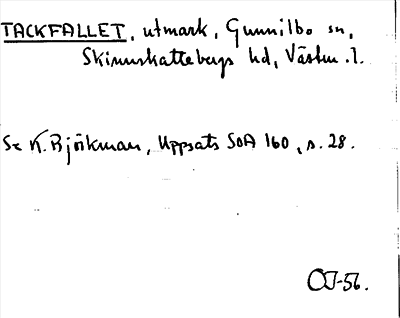 TACKFALLET, utmark, Gunnilbo sn,
Skinnskattebergs hd, Västm. l.
Se K. Björkman, Uppsats SOA 160, s. 28.
OJ-56.